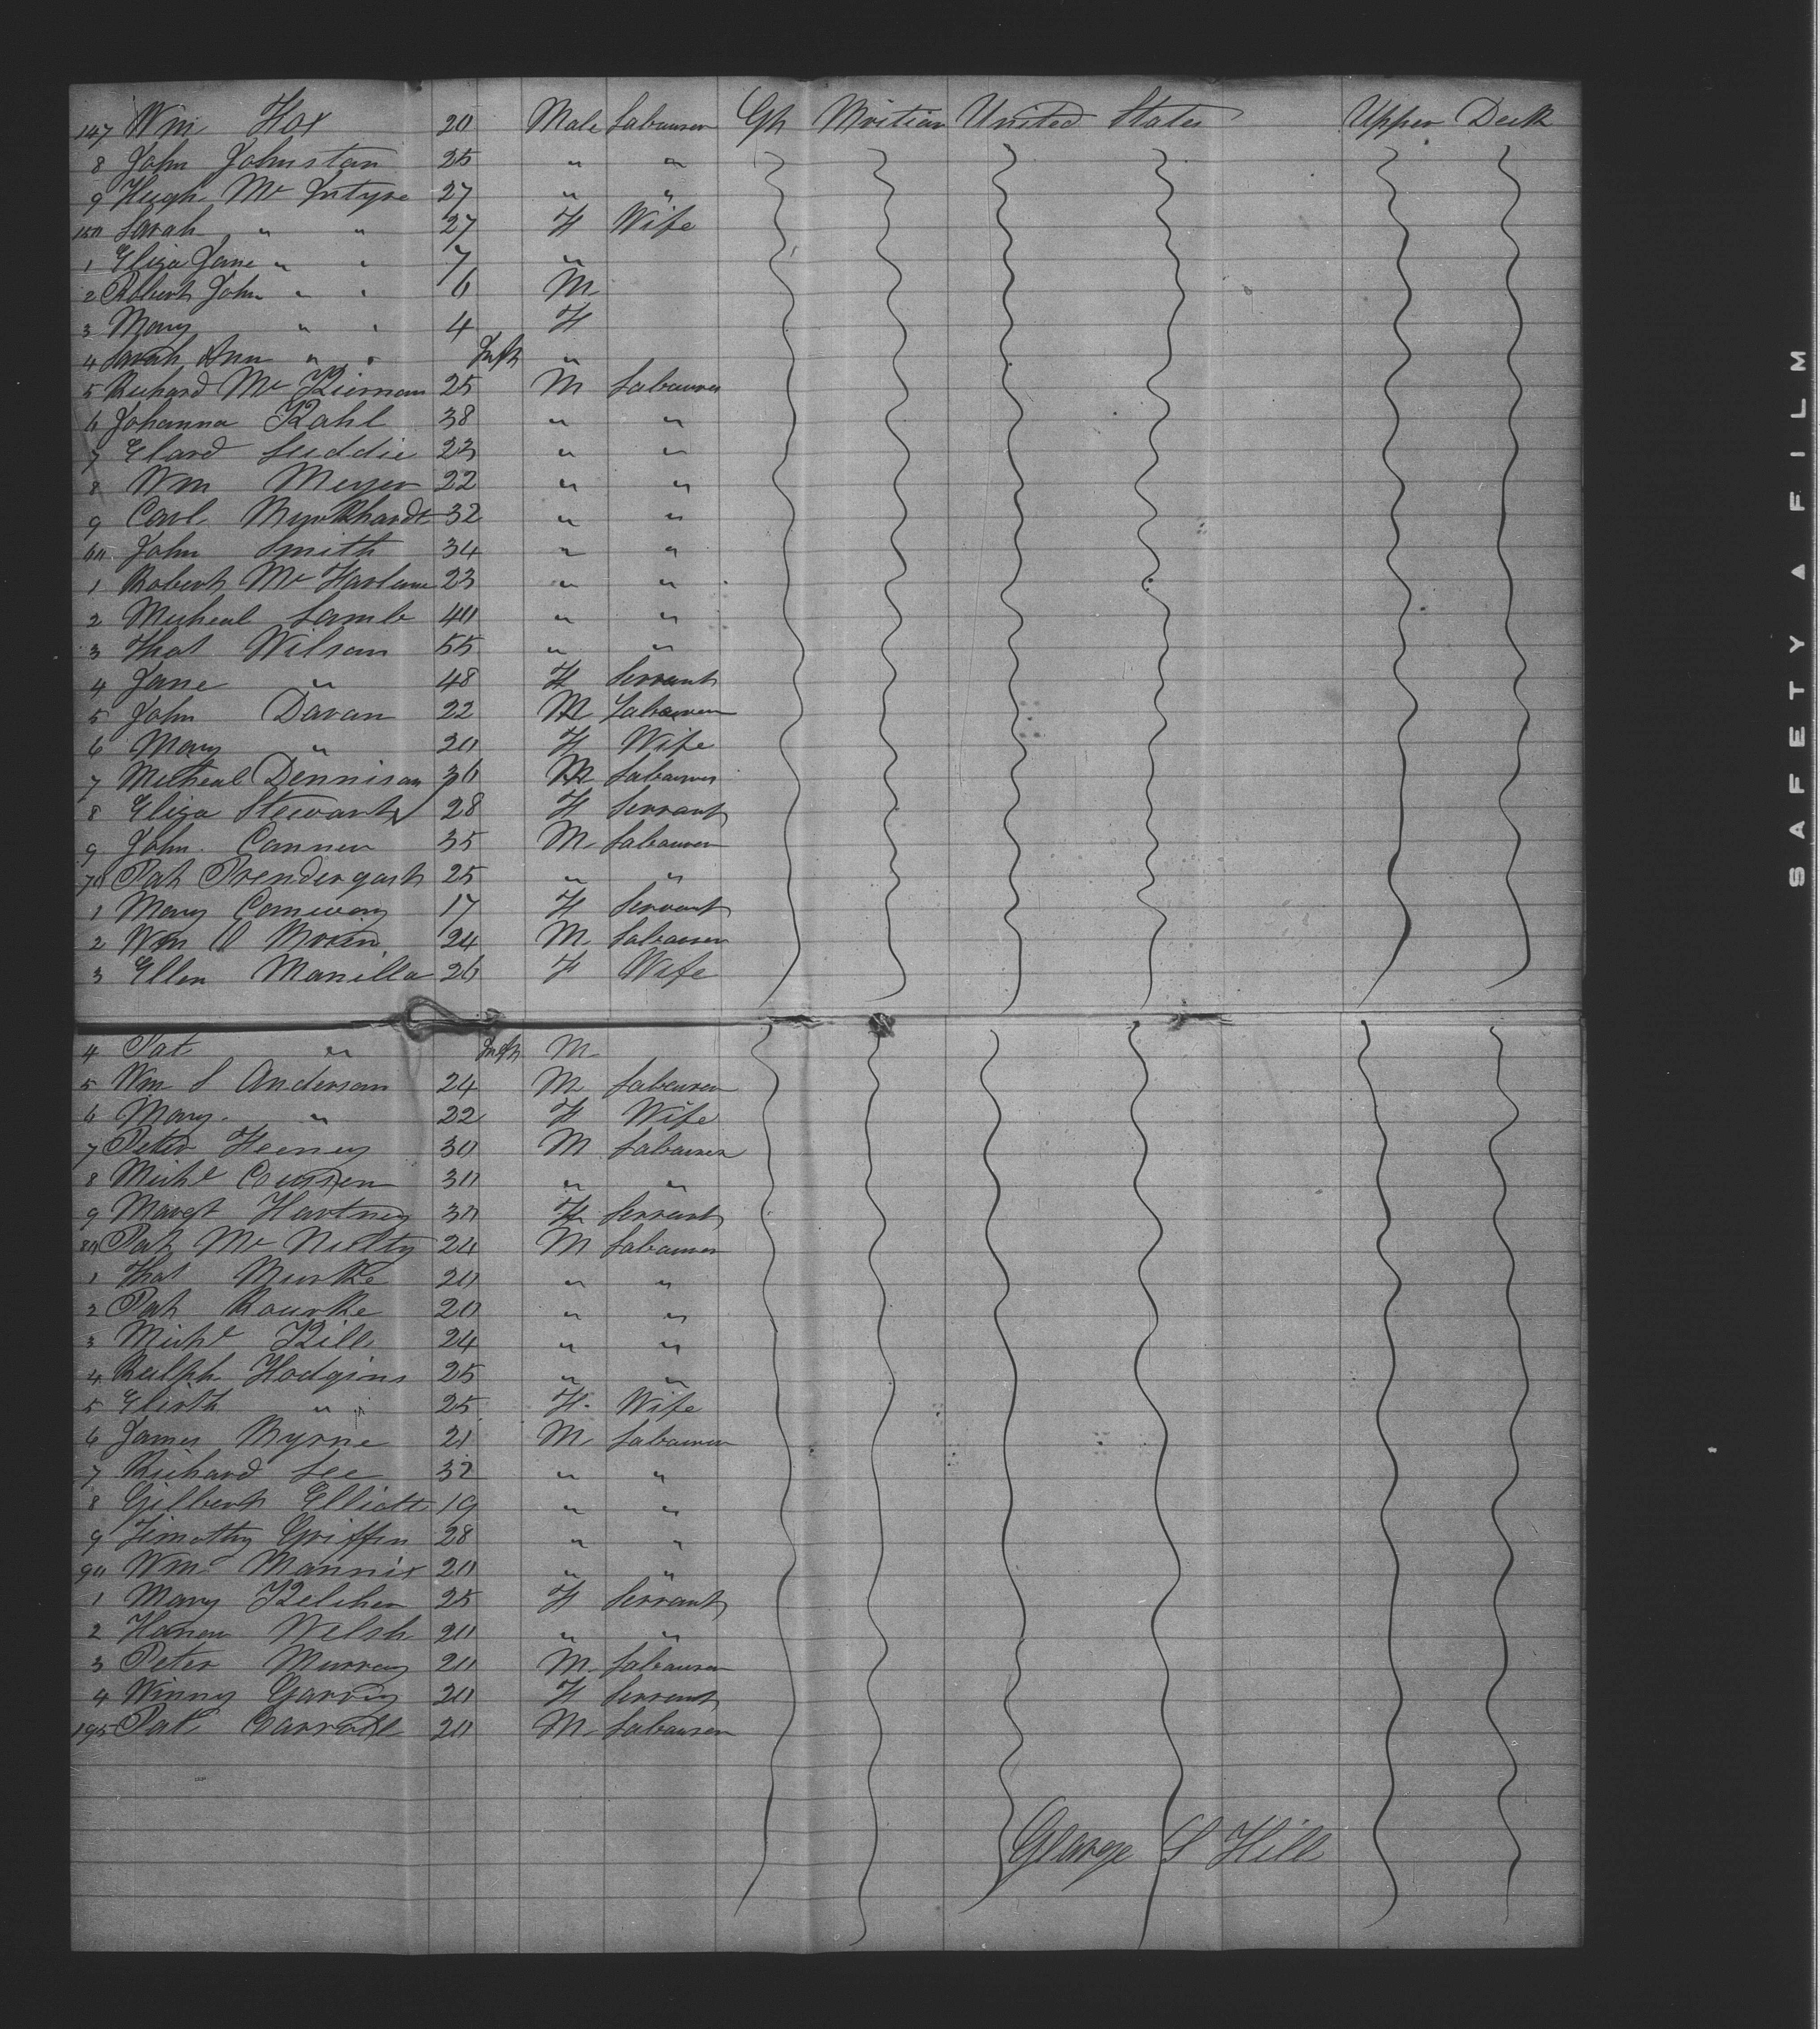 147 Wm Fox 20 Male Labourer Gt Britian United States Upper Deck
8 John Johnston 25 " "
9 Hugh Mc Intyre 27 " "
150 Sarah " " 27 F Wife
1 Eliza Jane " " 7 "
2 Robert John " " 6 M
3 Mary " " 4 F
4 Sarah Ann " " Inft "
5 Richard Mc Kiernan 25 M Labourer
6 Johanna Kahl 38 " "
7 Elard Luddie 23 " "
8 Wm Meyer 22 " "
9 Carl Burkhardt 32 " "
60 John Smith 34 " "
1 Robert Mc Farlane 23 " "
2 Micheal Lamb 40 " "
3 Thos Wilson 55 " "
4 Jane " 48 F Servant
5 John Davan 22 M Labourer
6 Mary " 20 F Wife
7 Micheal Dennison 36 M Labourer
8 Eliza Stewart 28 F Servant
9 John Connor 35 M Labourer
70 Pat Prendergast 25 " "
1 Mary Conway 17 F Servant
2 Wm O Brien 24 M Labourer
3 Ellen Manilla 26 F Wife
4 Pat " Inft M
5 Wm S Anderson 24 M Labourer
6 Mary " 22 F Wife
7 Peter Feeney 30 M Labourer
8 Michl Curren 30 " "
9 Margt Hartney 30 F Servant
80 Pat Mc Nulty 24 M Labourer
1 Thos Burke 20 " "
2 Pat Rourke 20 " "
3 Michl Kill 24 " "
4 Ralph Hodgins 25 " "
5 Elisth " 25 F Wife
6 James Byrne 21 M Labourer
7 Richard Lee 32 " "
8 Gilbert Elliott 19 " "
9 Timothy Griffin 28 " "
90 Wm Mannix 20 " "
1 Mary Keliher 25 F Servant
2 Honor Welsh 20 " "
3 Peter Murray 20 M Labourer
4 Winny Garvey 20 F Servant
195 Pat Carroll 20 M Labourer
George S Hill
SAFETY FILM